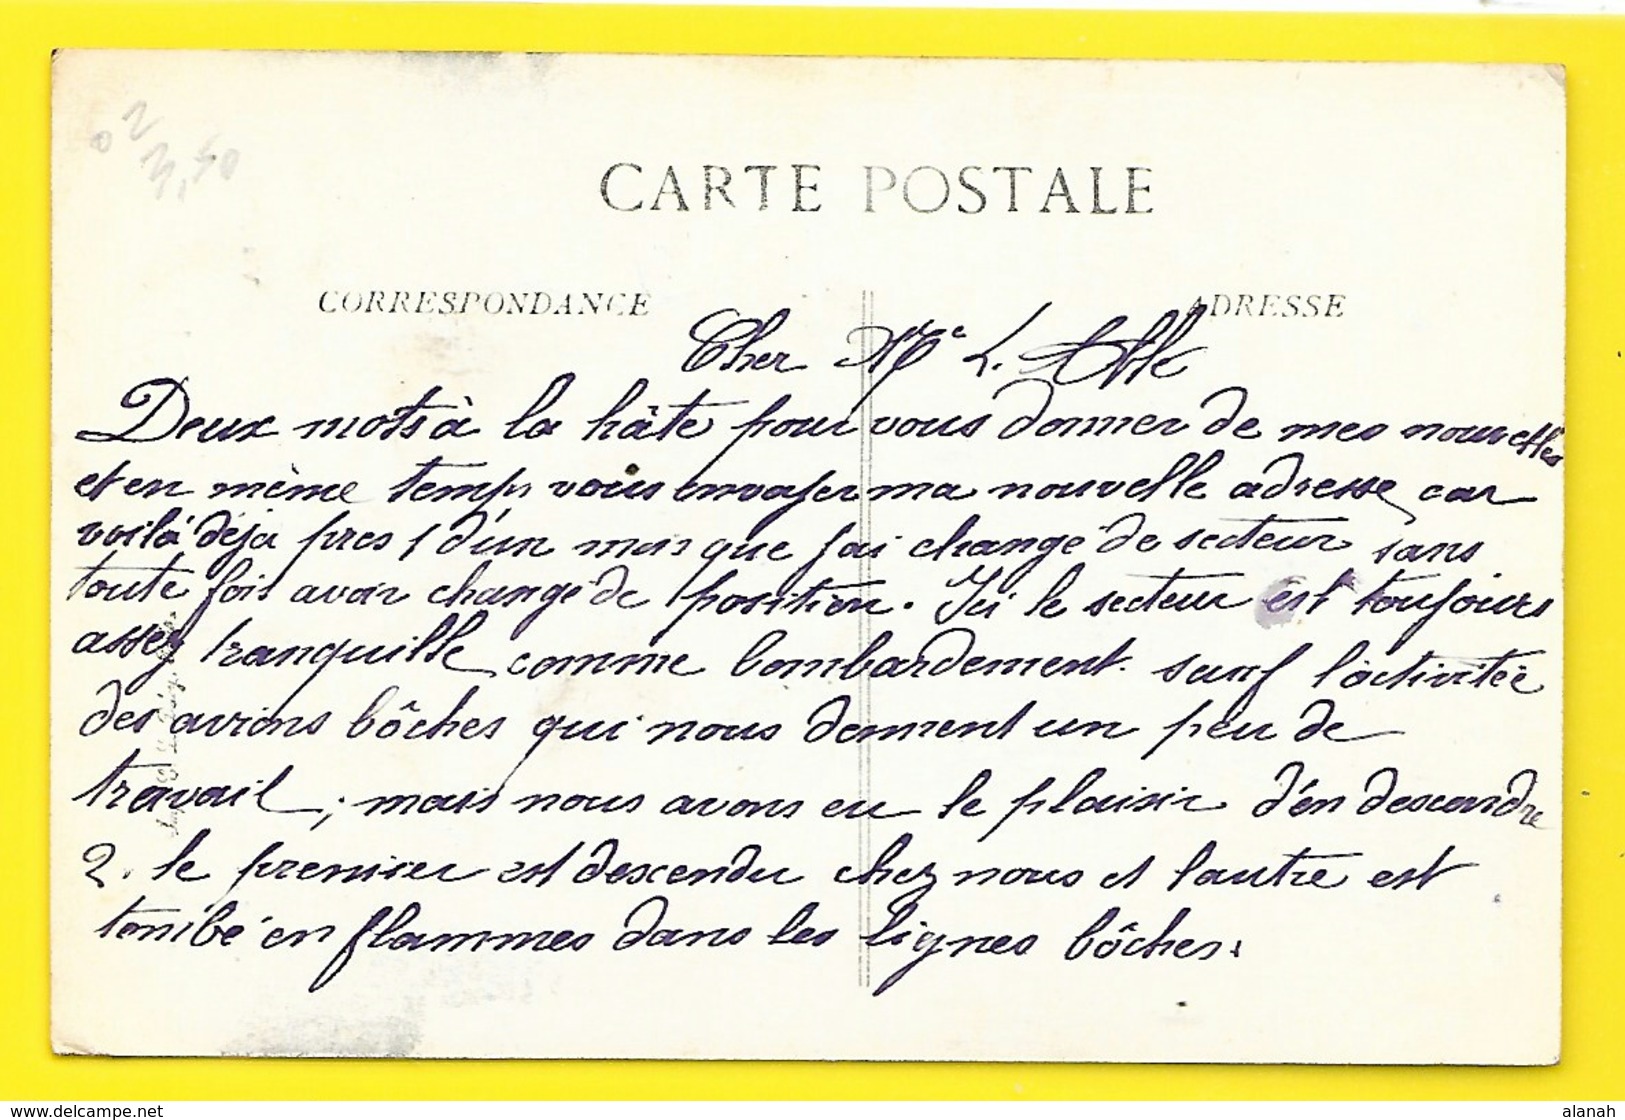 02
3,50
CARTE POSTALE
CORRESPONDANCE ADRESSE
Cher Mr L. Abbé
Deux mots à la hâte pour vous donner de mes nouvelles
et en même temps vous envoyer ma nouvelle adresse, car
voilà déjà près d'un mois que j'ai changé de secteur sans
toute fois avoir changé de position. Ici le secteur est toujours
assez tranquille comme bombardement sauf l'activitée
des avions bôches qui nous donnent un peu de
travail, mais nous avons eu le plaisir d'en descendre
2. le premier est descendu chez nous et l'autre est
tombé en flammes dans les lignes bôches.
www.delcampe.net alanah